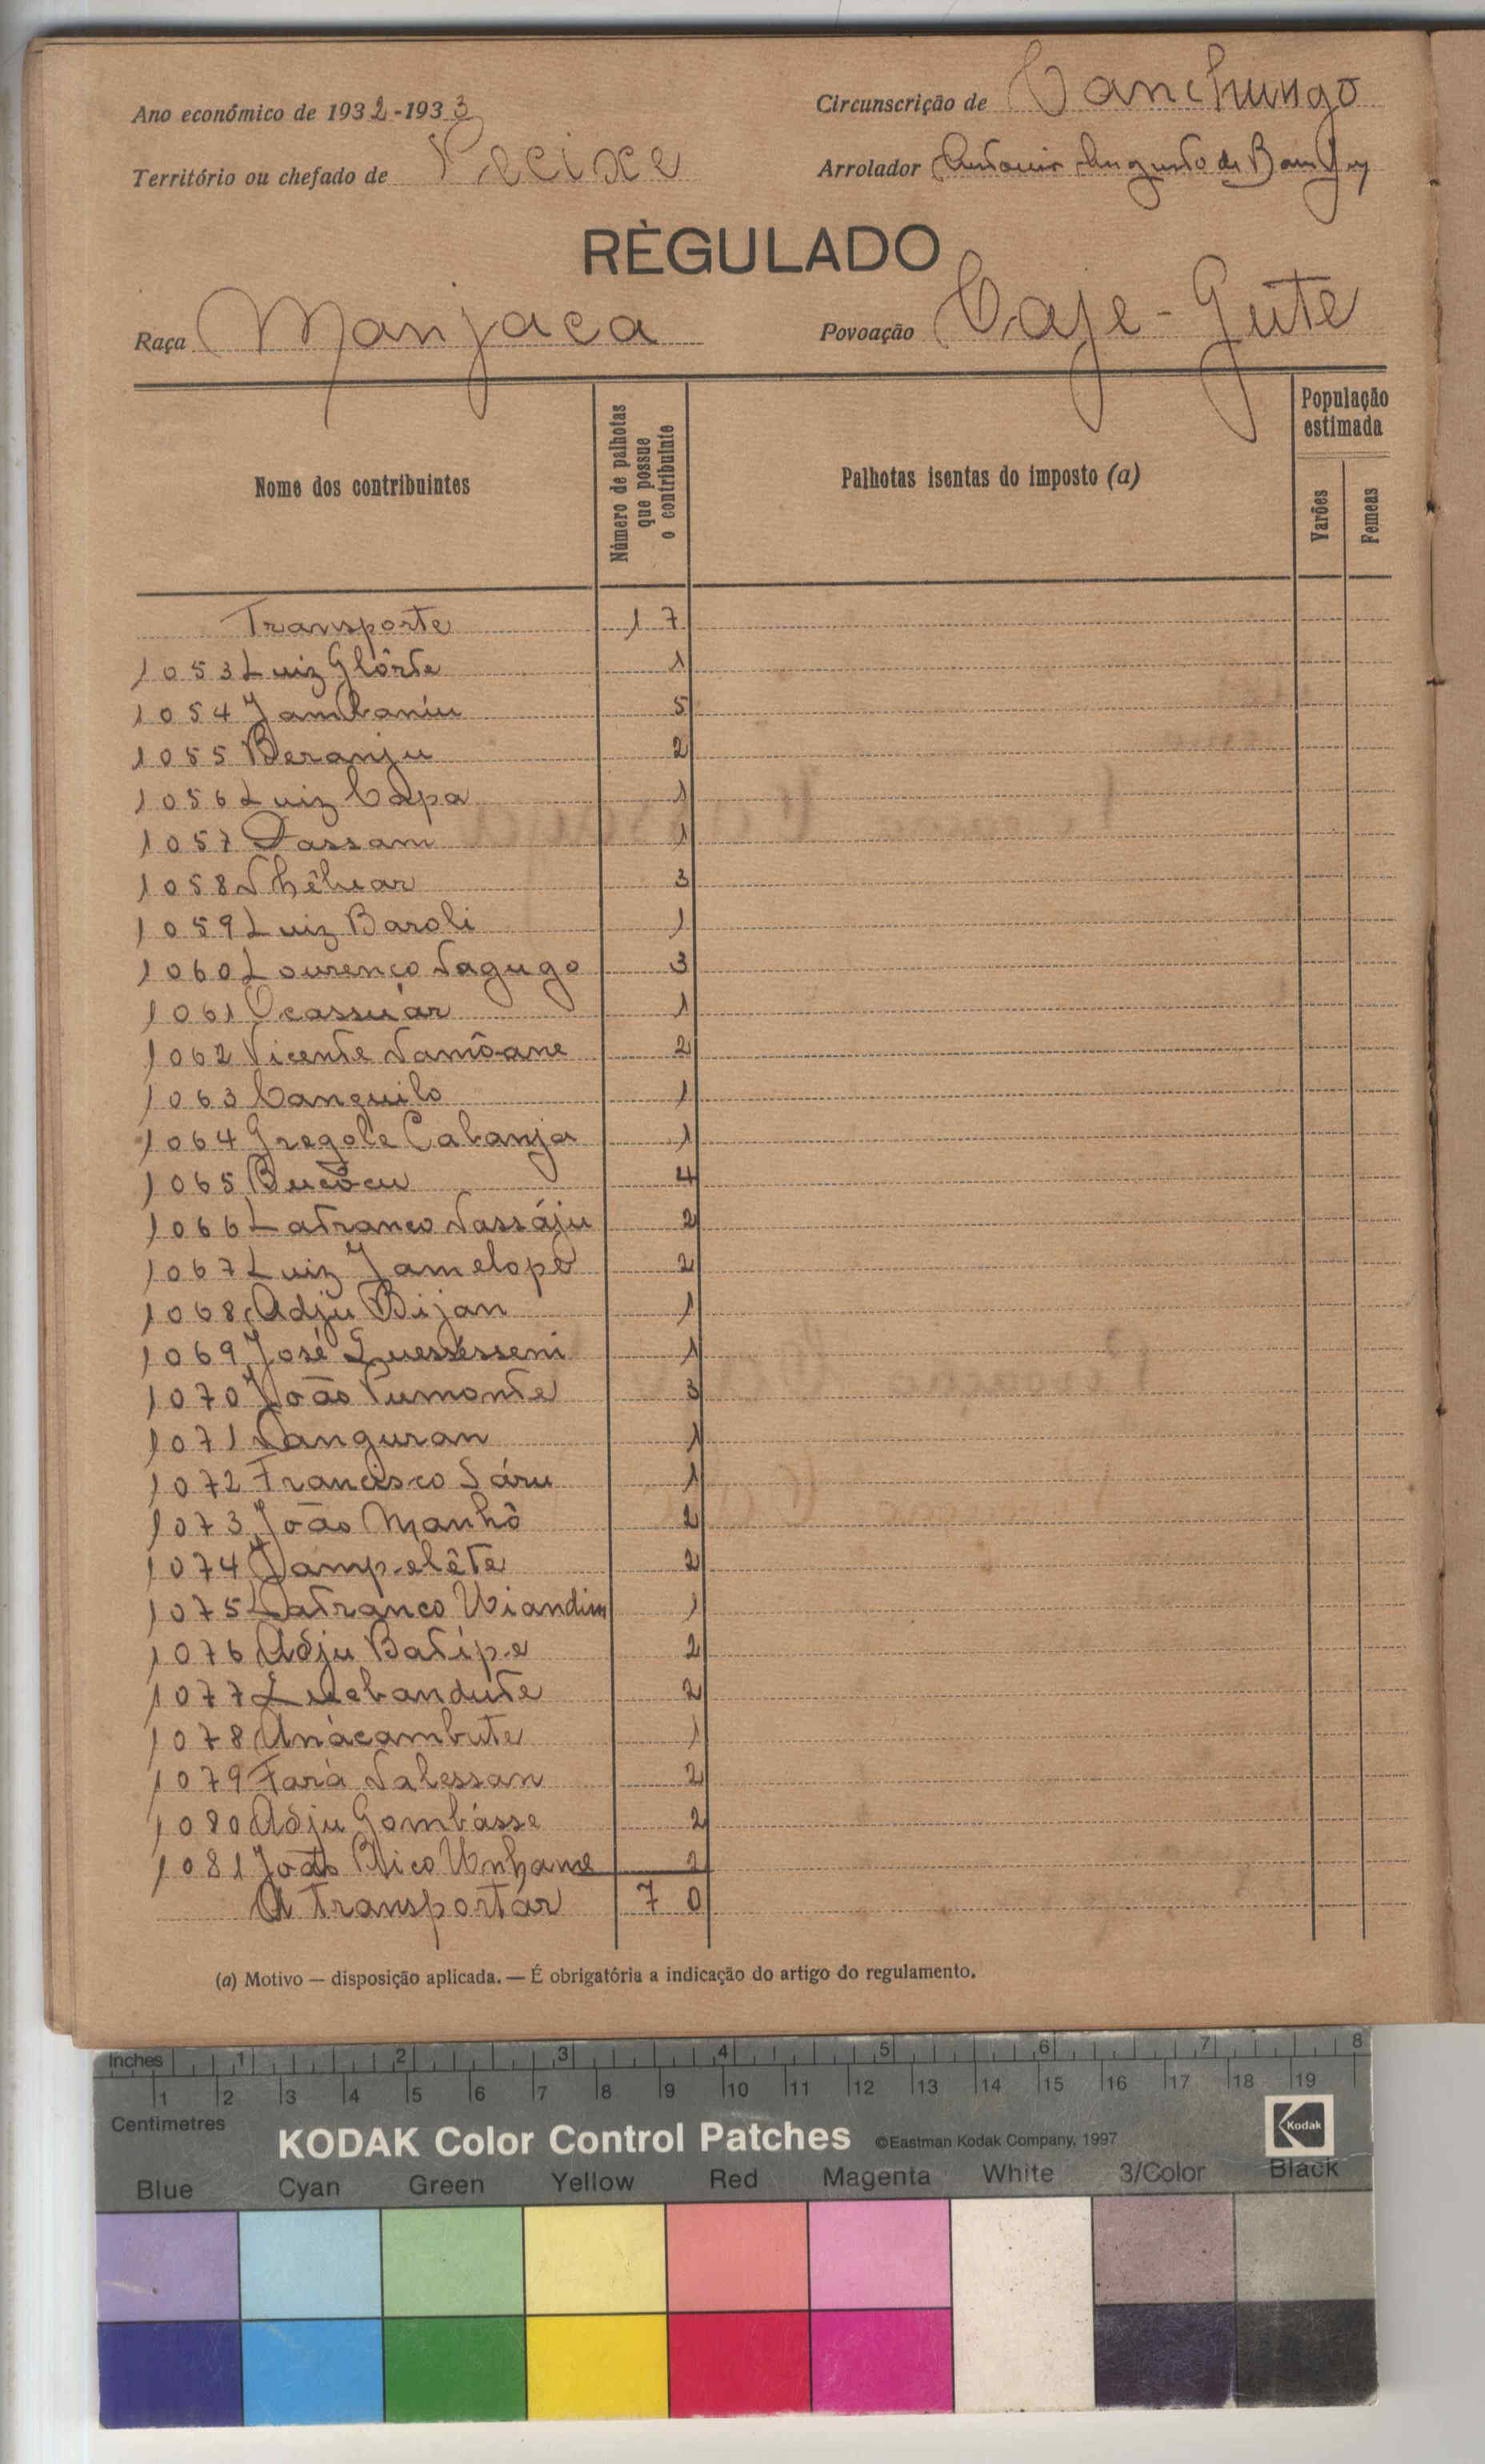 Ano económico de 1932-1933
Circunscrição de Canchungo
Território ou chefado de Pecixe
Arrolador Antonio Augusto de
RÈGULADO
Raça Manjaca
Povoação Caje-Gute
Nome dos contribuintes
Número de palhotas
que possue
o contribuinte
Palhotas isentas do imposto (a)
População
estimada
Varões
Femeas
Transporte 17
1053 Luiz Glôrte 1
1054 Jambaniu 5
1055 Beranju 2
1056 Luiz Capa 1
1057 Dassam 1
1058 3
1059 Luiz Baroli 1
1060 Lourenço Nagugo 3
1061 Ocassuár 1
1062 Vicente Namôane 2
1063 Canquilo 1
1064 Gregole Cabanja 1
1065 Bucôcu 4
1066 Latranco Nassáju 2
1067 Luiz Jamelopê 2
1068 Adju Bijan 1
1069 José Quessésseni 1
1070 João Pumonte 3
1071 Danguran 1
1072 Francisco Sáru 1
1073 João Manhô 2
1074 Jampelête 2
1075 Latranco Uiandim 1
1076 Adju Batípe 2
1077 2
1078 Anácambute 1
1079 Fará Nalessan 2
1080 Adju Gombásse 2
1081 João Bico Unhame 2
A Transportar 70
(a) Motivo — disposição aplicada. — É obrigatória a indicação do artigo do regulamento.
Inches 1 2 3 4 5 6 7 8
1 2 3 4 5 6 7 8 9 10 11 12 13 14 15 16 17 18 19
Centimetres
KODAK Color Control Patches ©Eastman Kodak Company, 1997 Kodak
Blue Cyan Green Yellow Red Magenta White 3/Color Black